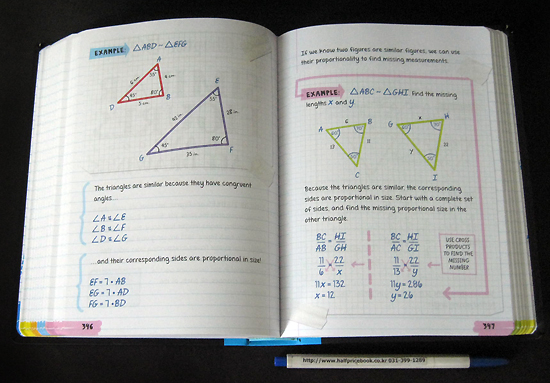 EXAMPLE △ABD ~ △EFG
A
6 cm
55°
4 cm
45°
80°
D
5 cm
B
E
55°
42 cm
28 cm
45°
80°
G
35 cm
F
The triangles are similar because they have congruent
angles...
∠A ≅ ∠E
∠B ≅ ∠F
∠D ≅ ∠G
...and their corresponding sides are proportional in size!
EF = 7 · AB
EG = 7 · AD
FG = 7 · BD
396
If we know two figures are similar figures, we can use
their proportionality to find missing measurements.
EXAMPLE: △ABC ~ △GHI. Find the missing
lengths x and y.
A
6
B
13
11
C
G
x
H
y
I
Because the triangles are similar, the corresponding
sides are proportional in size. Start with a complete set
of sides, and find the missing proportional size in the
other triangle.
BC/AB = HI/GH
11/6 = 22/x
11x = 132
x = 12
BC/AC = HI/GI
11/13 = 22/y
11y = 286
y = 26
USE CROSS
PRODUCTS
TO FIND THE
MISSING
NUMBER
397
http://www.halfpricebook.co.kr 031-399-1289